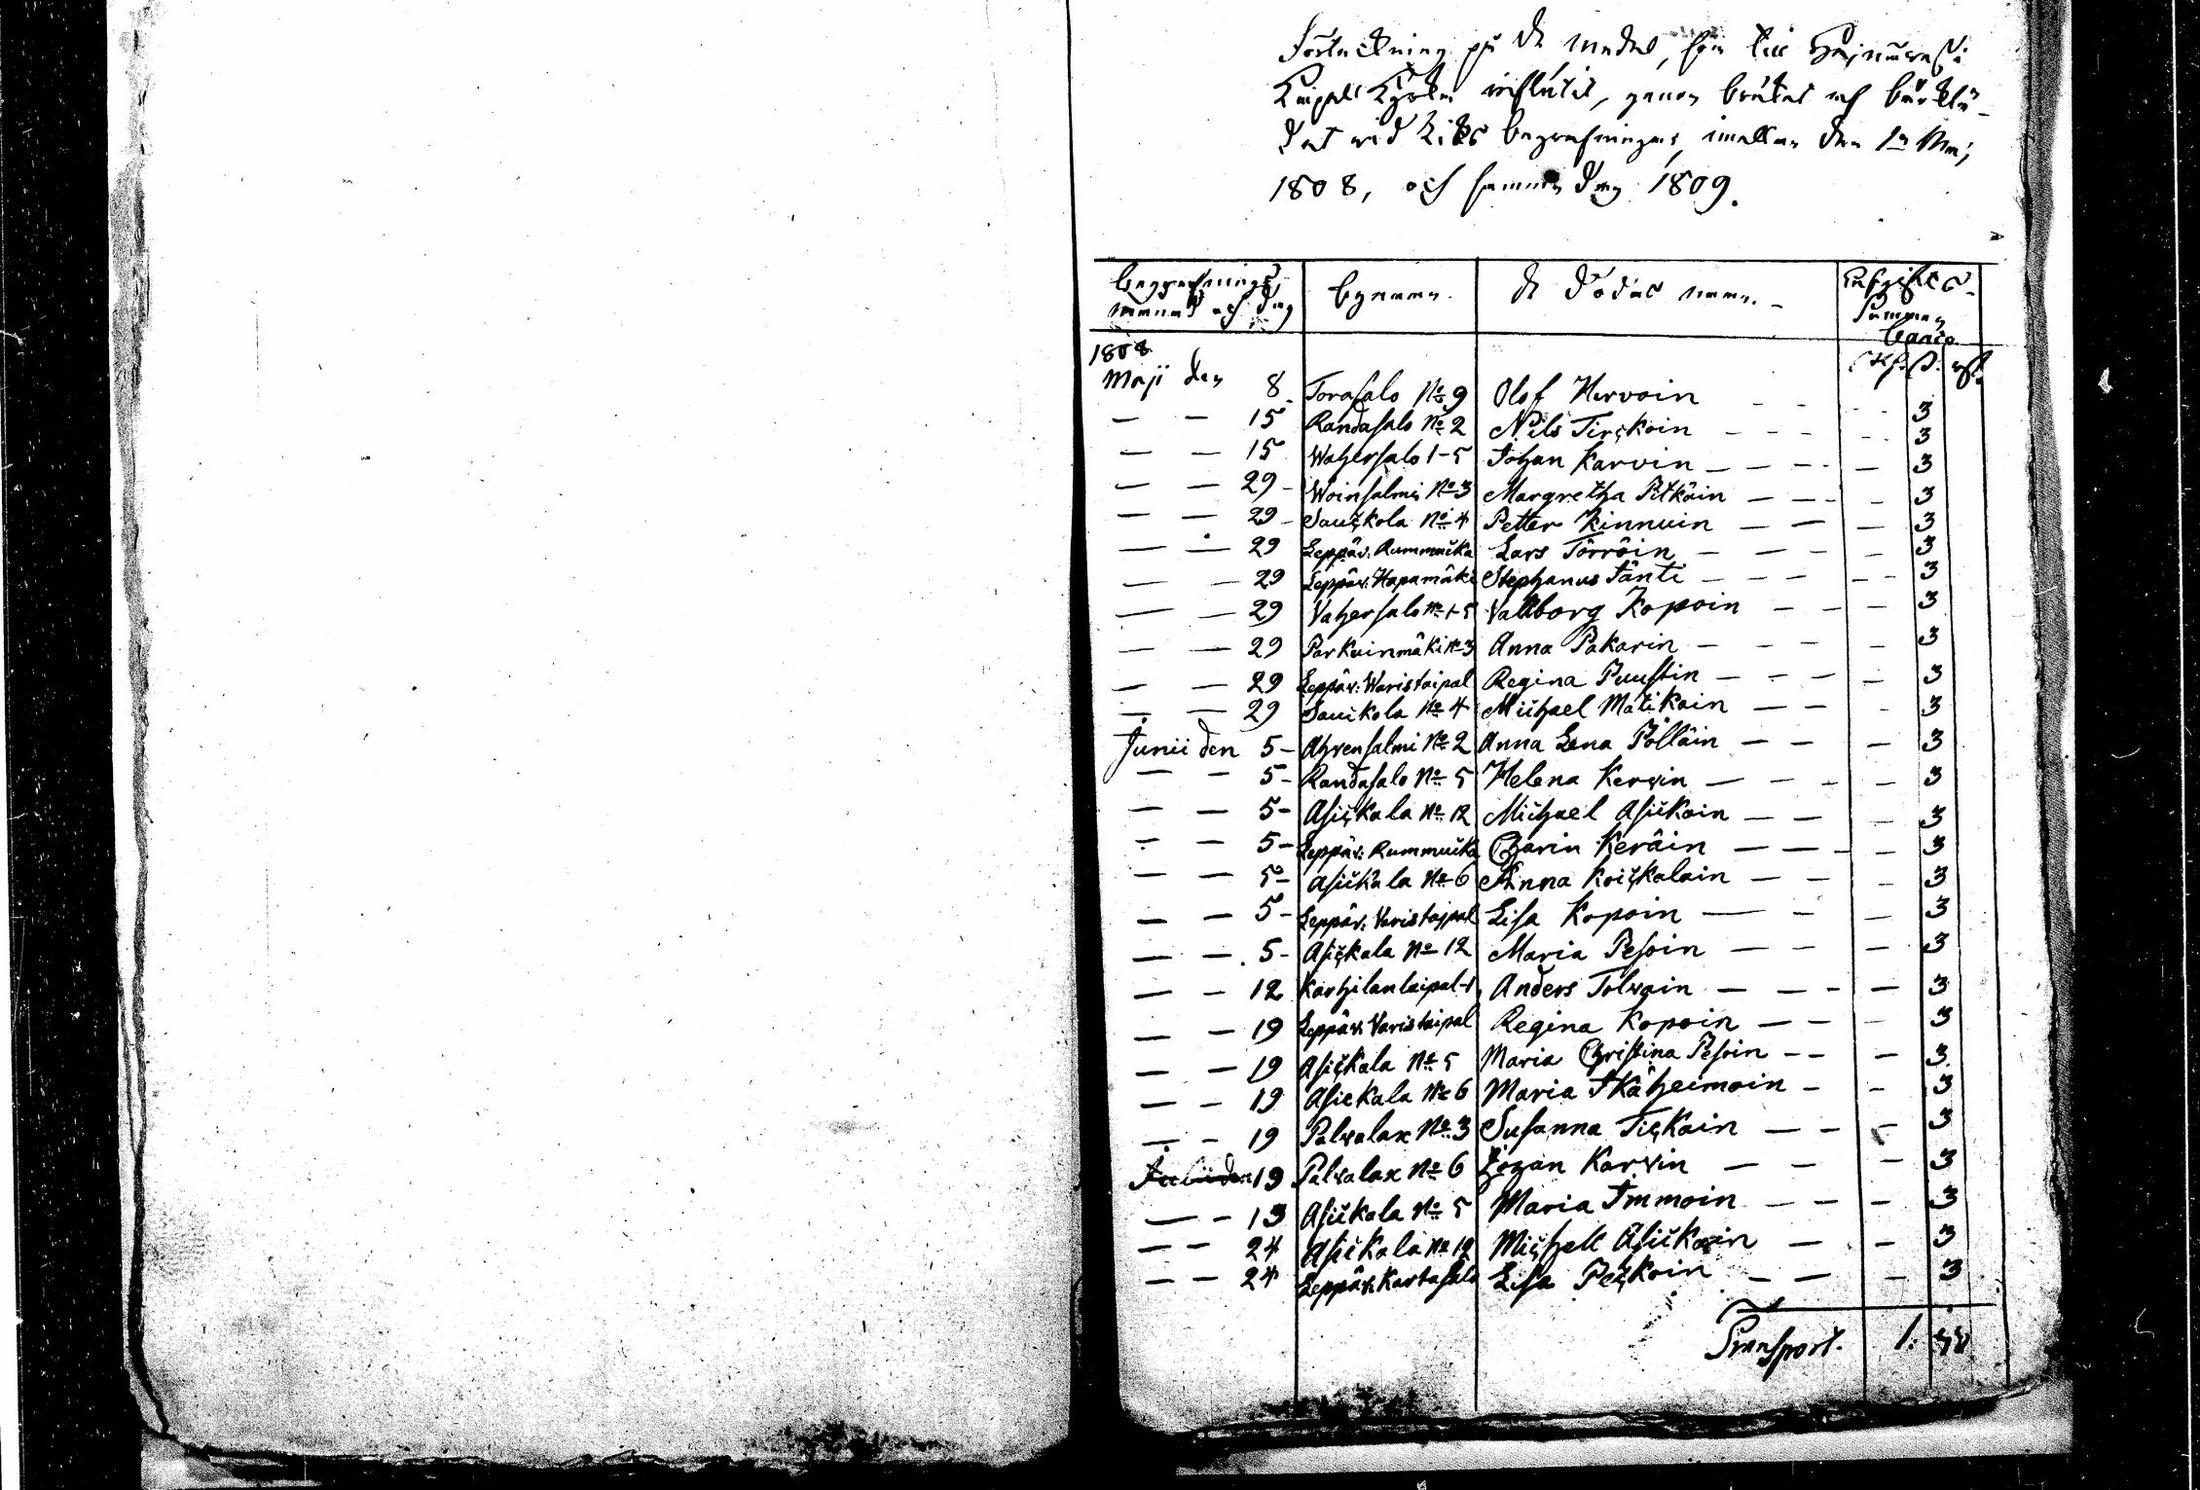 Förteckning på de medel, som till Heinäwesi
Capell Kyrka influtit, genom brukat af bårklä-
det wid Liks begrafningar, imellan den 1n Maj
1808, och samma dag 1809.
begrafnings, månad och dag | bynamn. | de dödas namn. | Erhgifne Summan banco
1808
Maji den 8. Torasalo No 9 Olof Hervoin - - - 3
— — 15 Randasalo No 2 Nils Tirckoin - - - 3
— — 15 Wahersalo 1-5 Johan Karvin — — — 3
— — 29 Woinsalmi No 3 Margretha Pitkäin — — — 3
— — 29 Sauickola No 4 Petter Kinnuin — — — 3
— — 29 Leppäv: Rummucka Lars Törröin — — — 3
— — 29 Leppäv: Hapamäki Stephanus Jänti — — — 3
— — 29 Vahersalo No 1-5 Vallborg Kopoin — — — 3
— — 29 Parkuinmäki No 3 Anna Pakarin — — — 3
— — 29 Leppäv: Waristaipal Regina Puustin — — — 3
— — 29 Sauikola No 4 Michael Matikain — — - 3
Junii den 5 Ahvensalmi No 2 Anna Lena Pölläin — — — 3
— — 5 Randasalo No 5 Helena Kervin — — — 3
— — 5 Asickala No 12 Michael Asickain — — — 3
— — 5 Leppäv: Rummucka Charin Keräin — — — 3
— — 5 Asickala No 6 Anna Koickalain — — — 3
— — 5 Leppäv: Varistaipal Lisa Kopoin — — — 3
— — 5 Asickala No 12 Maria Pesoin — — — 3
— — 12 Karhilantaipal-1 Anders Tolvain — — — 3
— — 19 Leppäv: Varistaipal Regina Kopoin — — — 3
— — 19 Asickala No 5 Maria Christina Pesoin — — 3
— — 19 Asickala No 6 Maria Ikäheimoin — — 3
— — 19 Palvalax No 3 Susanna Tickain — — — 3
Julii den 19 Palvalax No 6 Johan Karvin — — — 3
— — 13 Asickala No 5 Maria Immoin — — — 3
— — 24 Asickala No 12 Michell Asickain — — 3
— — 24 Leppäv: Kartasalo Lisa Peckoin — — — 3
Transport. 1: